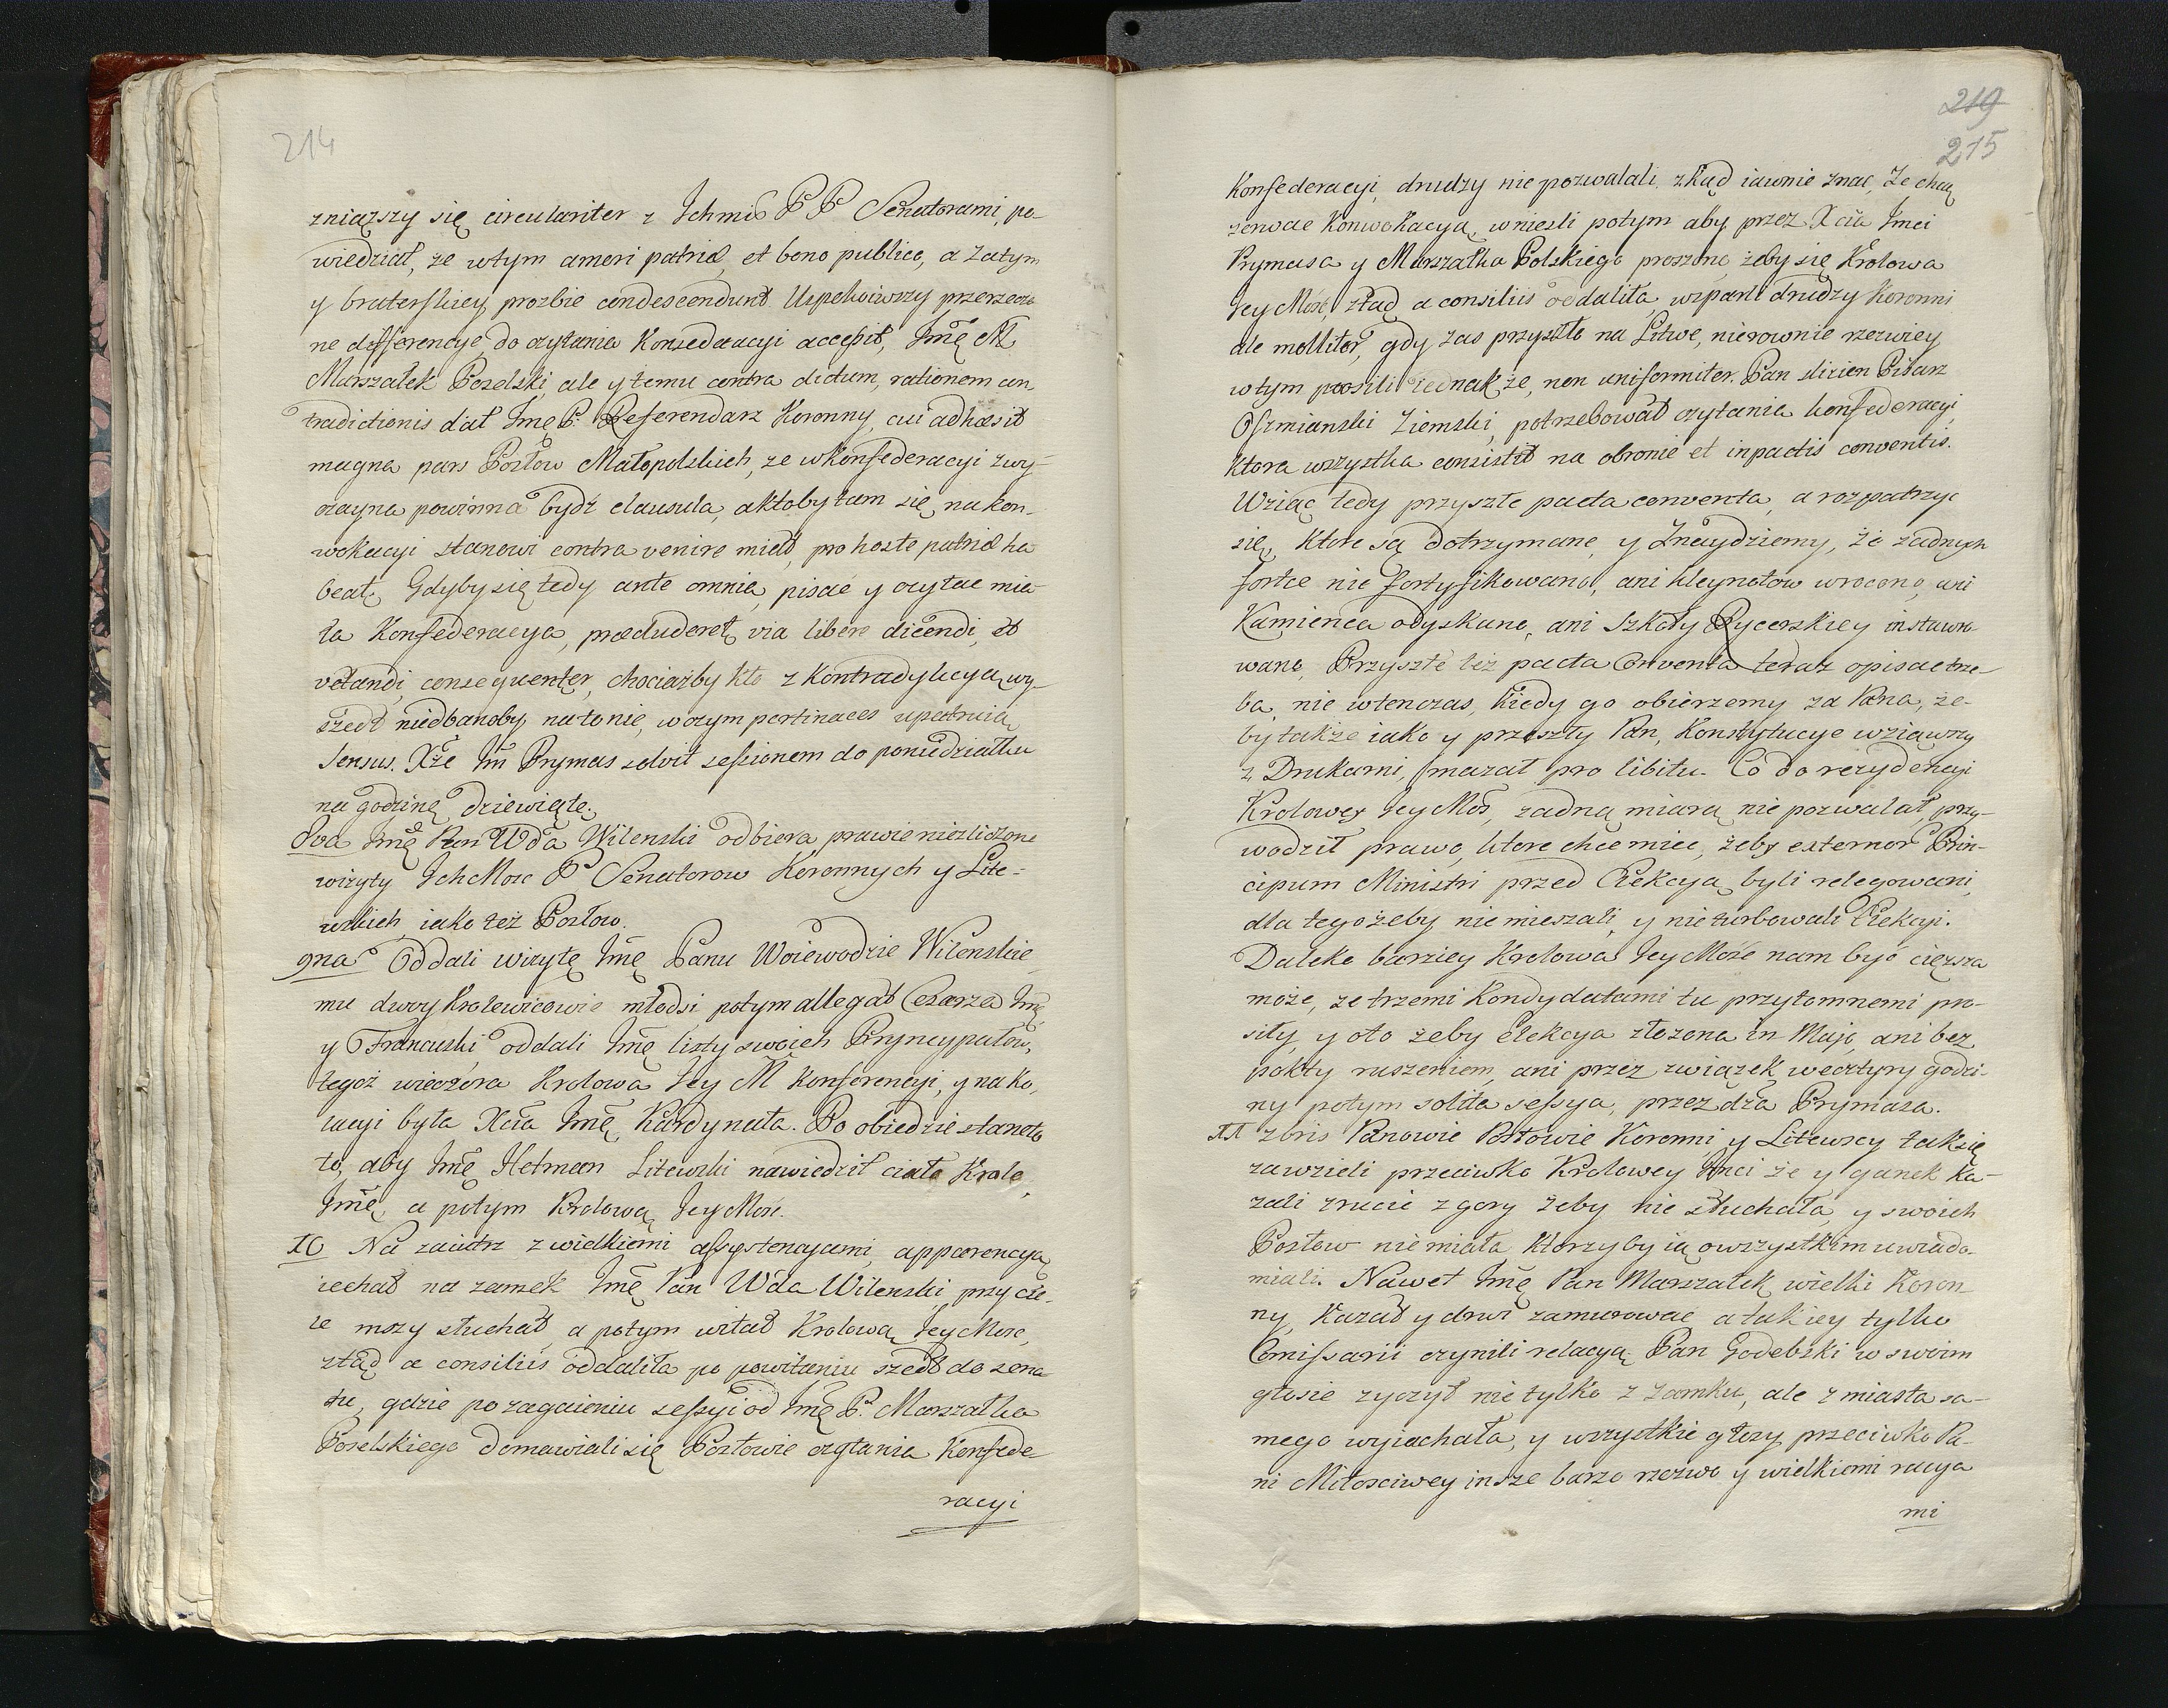 214
zniązszy się circulariter z Ichmić P P Senatorami, po-
wiedział, że wtym amori patriæ, et bono publico, a zatym
y braterskiey prozbie condescendunt. Uspokoiwszy przerzeczo
ne differencye, do czytania Konfederacyi accessit, Jmę M
Marszałek Poselski, ale y temu contra dictum, rationem con
tradictionis dał Jmę P. Referendarz Koronny, cui adhæsit
magna pars Posłow Małopolskich, że w Konfederacyi zwy-
czayna powinna bydź clausula, a ktoby tam się, na kon-
wokacyi stanowi contra venire miał, pro hoste patriæ ha
beat. Gdyby się tedy ante omnia, pisać y czytac mia-
ła Konfederacya, præcluderet, via libere dicendi, et
votandi, consequenter, chociażby kto z Kontradykcyą wy-
szedł niedbanoby na to nie, w czym pertinaces upatruią
sensus. Xże Jm Prymas solvit sessionem do poniedziałku
na godzinę dziewiątę.
8va Jmę Pan Wda Wilenski odbiera prawie niezliczone
wizyty IchMosc P Senatorow Koronnych y Lite-
wskich, iako też Posłow.
9na Oddali wizytę Jmę Panu Woiewodzie Wilenskie-
mu dway Krolewicowie młodsi potym allegat Cesarza Jmę
y Francuski oddali Jmę listy swoich Pryncypałow,
tegoż wieczora Krolowa Jey M Konferencyi, y na Ko,
lacyi była Xcia Jmę, Kardynała. Po obiedzie staneło
to, aby Jmę Hetman Litewski nawiedził ciało Krole
Jmę, a potym Krolową Jey Mość.
10 Na zaiutrz z wielkiemi assystencyami, apparencyą
iechał na zamek Jmę Pan Wda Wilenski, przy cie-
le mszy słuchał, a potym witał Krolową Jey Mosc,
ztąd a consiliis oddaliła po powitaniu szedł do sena
tu, gdzie po zagaieniu sessyi od Jmę P. Marszałka
Poselskiego domawiali się Posłowie czytania Konfede-
racyi
219
215
Konfederacyi, drudzy nie pozwalali. zkąd iawnie znac, że chcą
zerwac Konwokacyą, wniesli potym aby przez Xcia Jmci
Prymasa y Marszałka Polskiego proszono, żeby się Krolowa
Jey Mość, ztąd a consiliis oddaliła, wsparli drudzy Koronni
ale mollitor, gdy zas przyszło na Litwe, nierownie rzezwiey
w tym prosili iednakże, non uniformiter. Pan slizien Pisarz
Oszmianski Ziemski, potrzebował czytania konfederacyi,
ktora wszystka consistit na obronie et in pactis conventis.
Wziąc tedy przyszłe pacta conventa, a rozpatrzyc
się, ktore są dotrzymane, y Znaydziemy, że żadnych
fortec nie fortyfikowano, ani kleynotow wrocono, ani
Kamienca odyskano, ani Szkoły Rycerskiey instawro-
wano, Przyszłe też pacta Conventa teraz opisac trze-
ba, nie wtenczas, kiedy go obierzemy za Pana, że-
by także iako y przeszły Pan, Konstytucye wziąwszy
z Drukarni, mazał pro libitu. Co do rezydencyi
Krolowey Jey Moś, żadną miarą nie pozwalał, przy-
wodził prawo, ktore chce miec, żeby externor Prin-
cipum Ministri przed Elekcyą byli relegowani,
dla tego żeby nie mieszali, y nie turbowali Elekcyi.
Daleko barziey Krolowa Jey Mość nam byċ cięzsza
może, ze trzemi Kondydatami tu przytomnemi pro-
siły, y oto żeby elekcya złozona in Majo, ani bez
pokty ruszeniem, ani przez związek, wecztyry godzi-
ny potym solita sessya, przez dza Prymasa.
11 zbris Panowie Posłowie Koronni, y Litewscy tak się
zawzieli przeciwko Krolowey Jmci że y ganek ka-
zali zrucic z gory żeby nie słuchała, y swoich
Posłow nie miała ktorzyby ią owszystkim uwiado-
miali. Nawet Jmę Pan Marszałek wielki Koron-
ny, Kazał y drwi zamurowac a takiey tylko
Comissarii czynili relacyą. Pan Godebski w swoim
głosie zyczył nie tylko z zamku, ale z miasta sa-
mego wyiachała, y wszystkie głosy przeciwko Pa-
ni Miłosciwey insze barzo rzezwo y wielkiemi racya
mi